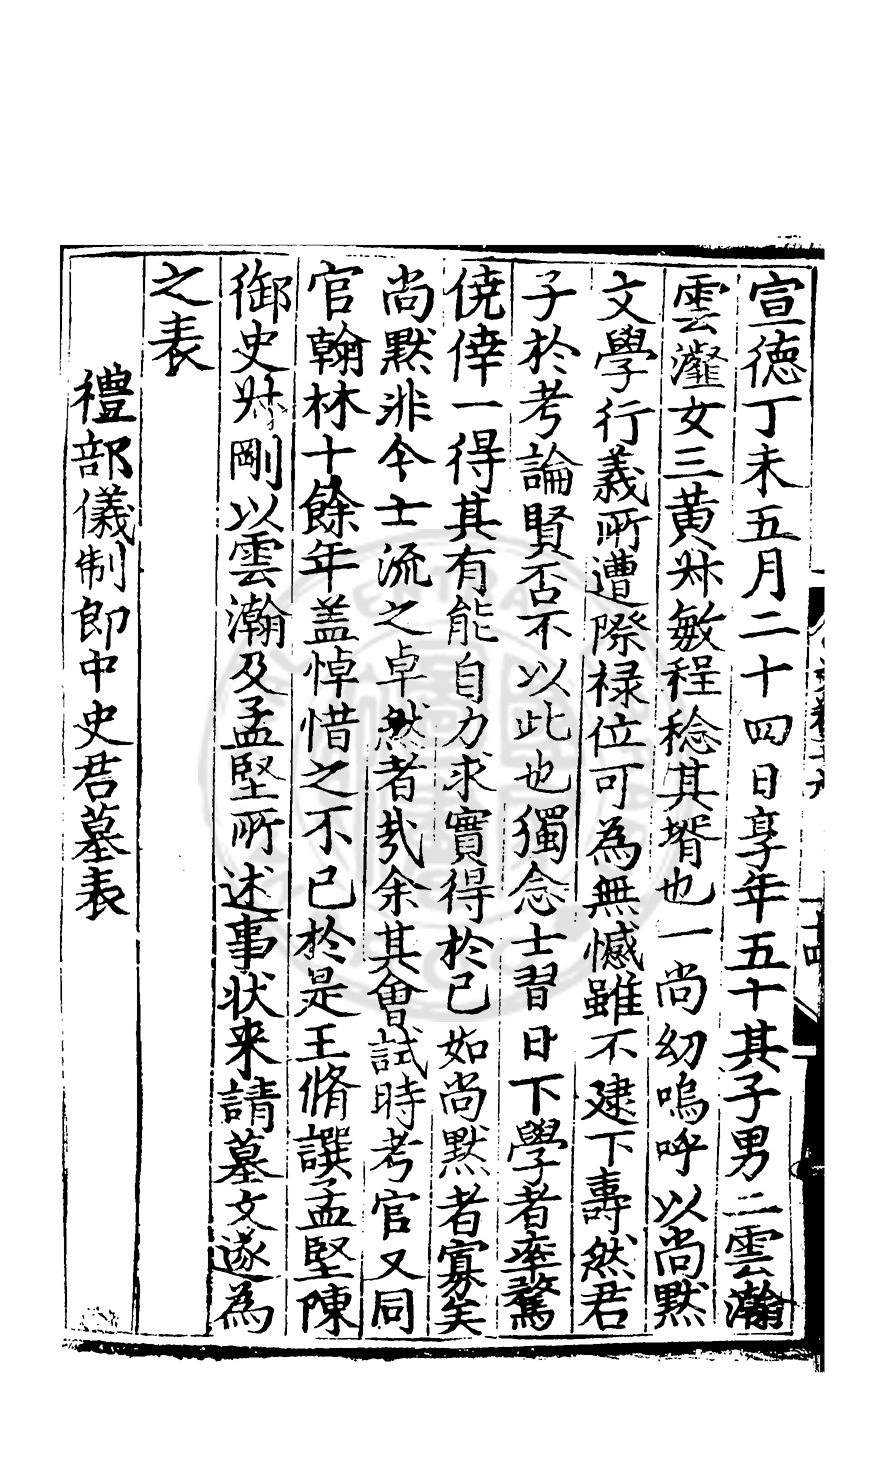 宣德丁未五月二十四日享年五十其子男二雲瀚
雲灕女三黄叔敏程稔其壻也一尚幼嗚呼以尚黙
文學行義所遭際禄位可為無憾雖不逮下壽然君
子於考論賢否不以此也獨念士習日下學者率騖
僥倖一得其有能自力求實得於已如尚黙者寡矣
尚黙非今士流之卓然者㢤余其會試時考官又同
官翰林十餘年盖悼惜之不已於是王脩譔孟堅陳
御史叔剛以雲瀚及孟堅所述事状来請墓文遂為
之表
禮部儀制郎中史君墓表